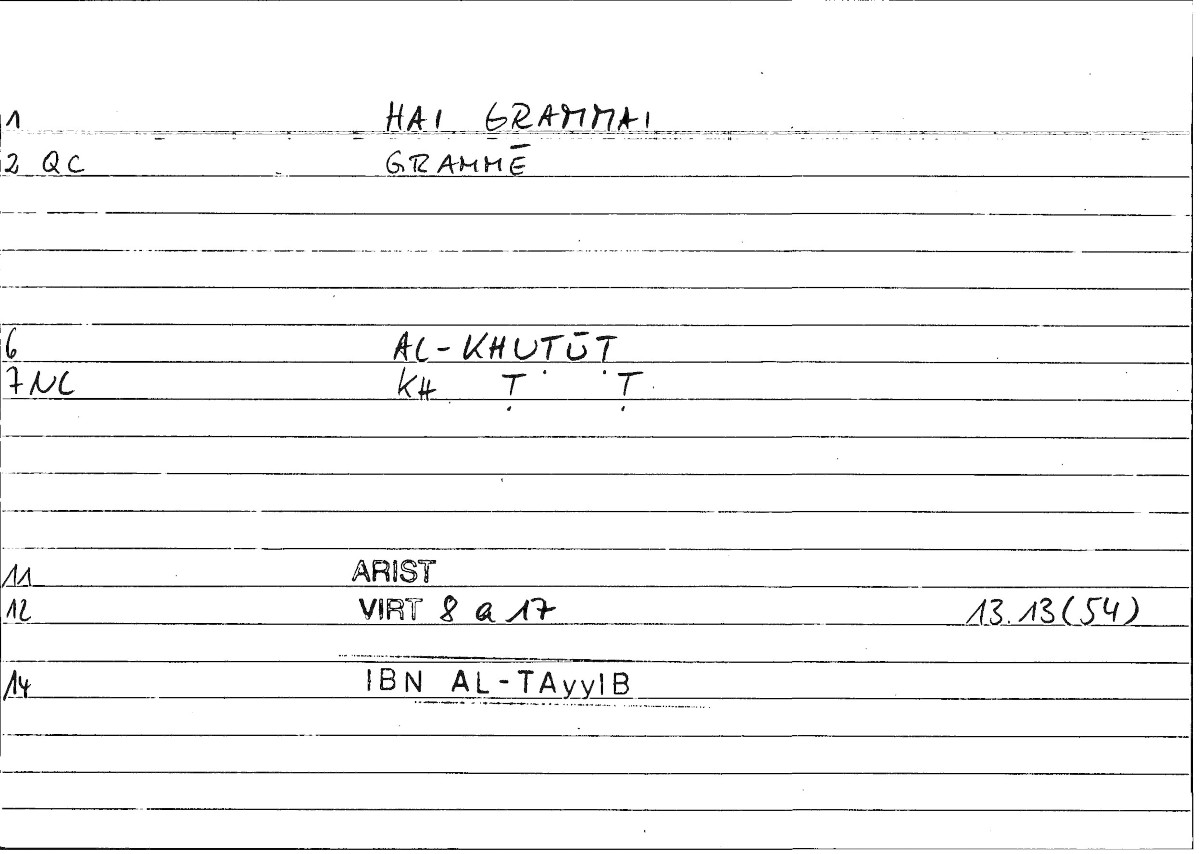 1 HAI GRAMMAI
2 QC GRAMMĒ
6 AL-KHUṬŪṬ
7 NC KH Ṭ Ṭ
11 ARIST
12 VIRT 8 a 17 13.13(54)
14 IBN AL-TAyyIB